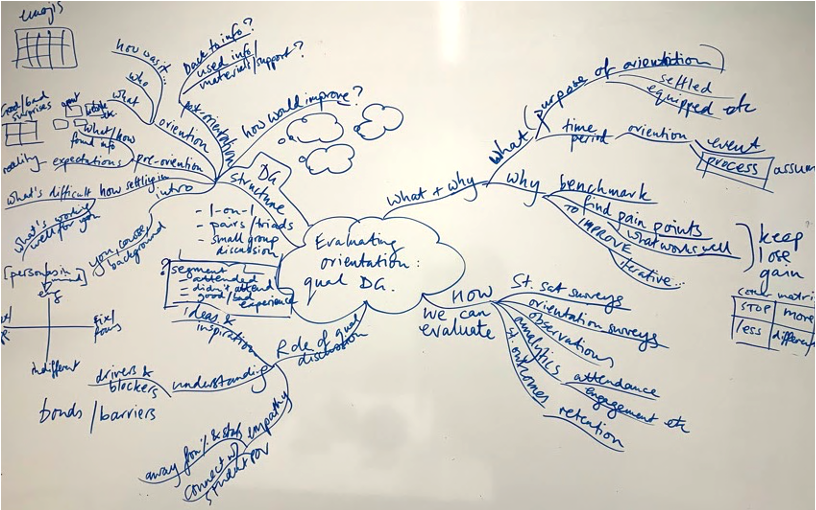 emojis
how was it...
who
what
orientation
Back to info?
used info
materials/support?
post-orientation
how would improve?
Good/bad
surprises
agent
what/how
found info
reality - expectations - pre-oriention
what's difficult how settling in
what's working
well for you
intro
you, career
background
DG
structure
- 1-on-1
- pairs/triads
- small group
discussion
? segment
- attended
- didn't attend
- good/bad
experience
[personas in
eng
indifferent
Evaluating
orientation:
qual DG.
Role of qual
discussion
ideas &
inspiration
understanding
drivers &
blockers
bonds/barriers
empathy
away from % & stats
connect w/
student POV
what + why
what
purpose of orientation
settled
equipped etc
time
period
oriention
event
process
assum
why
benchmark
find pain points
what works well
TO IMPROVE
iterative...
keep
lose
gain
STOP
more
less
different
HOW
we can
evaluate
St. sat surveys
orientation surveys
observations
analytics
attendance
engagement etc
st. outcomes
retention